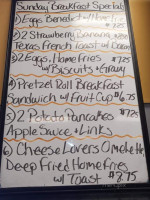 Sunday Breakfast Specials
1) Eggs Benedict w/
2) 2 Strawberry Banana
Texas French Toast w/ Bacon
2) 2 Eggs, Home fries $7.75
w/ Biscuits & Gravy
4) Pretzel Roll Breakfast
Sandwich w/ Fruit Cup $6.75
5) 2 Potato Pancakes $7.25
Apple Sauce & Links
6) Cheese Lovers Omelette
Deep Fried Home fries
w/ Toast $7.75